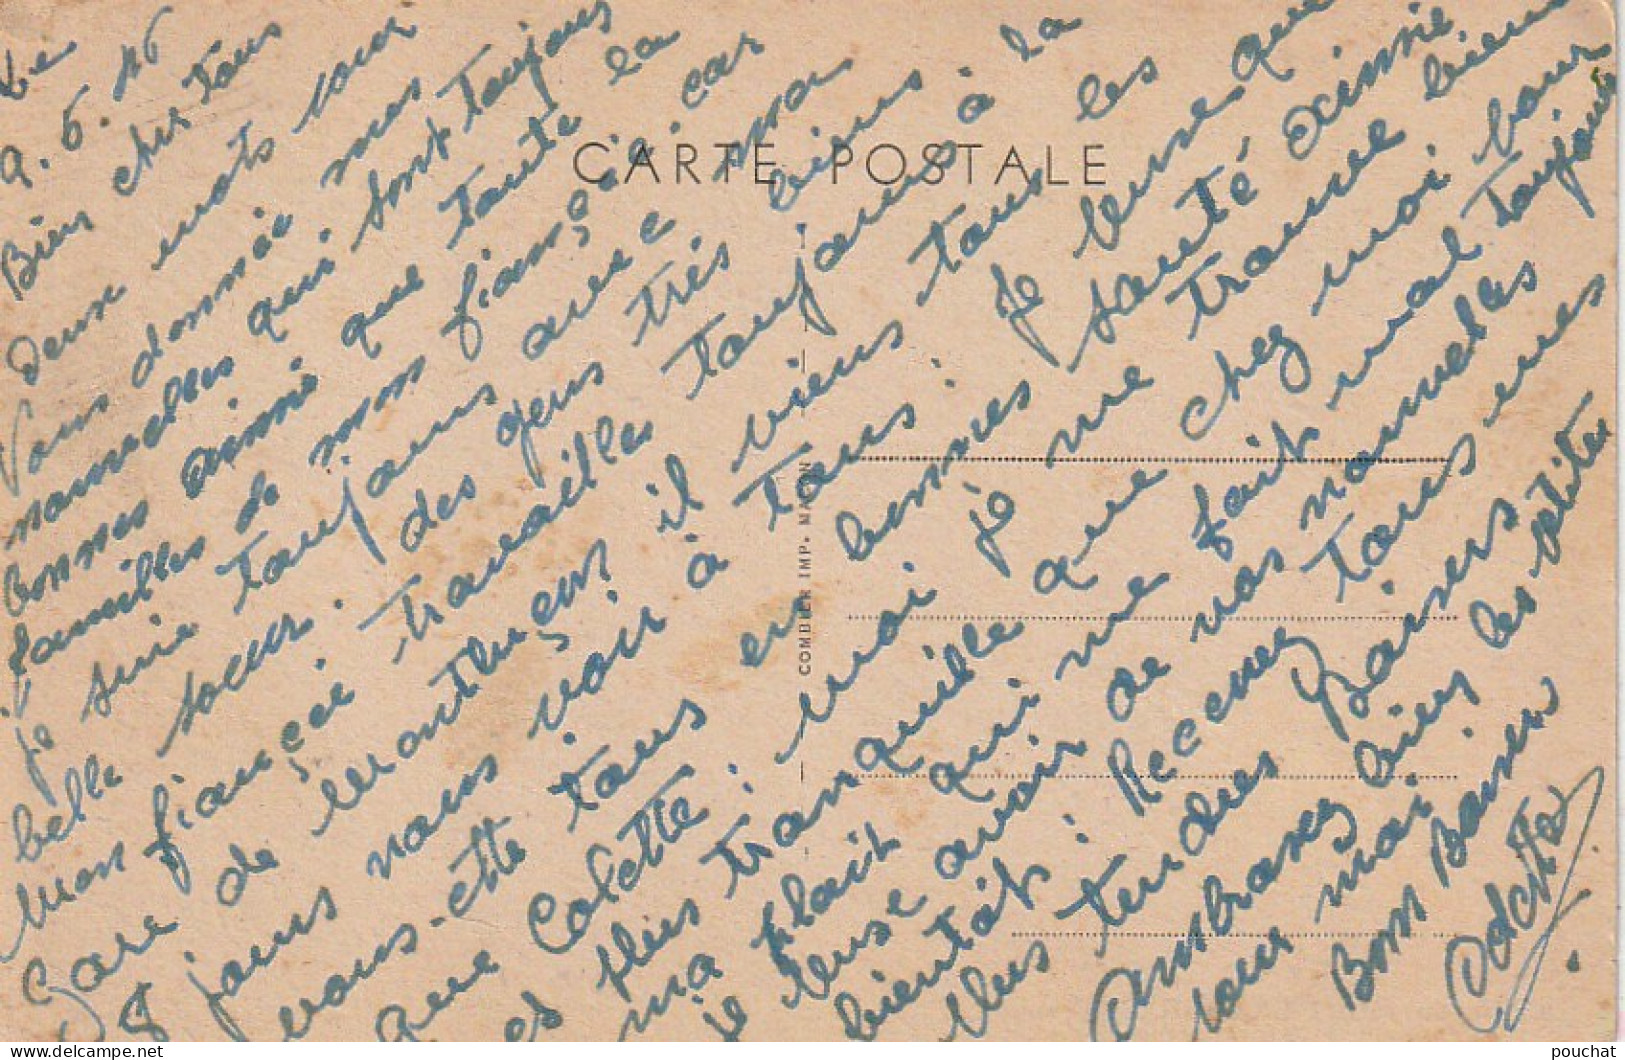 Le
9.5.46
Bien cher tous
Deux mots pour
Vous donnée mes
nouvelles qui sont toujours
bonnes ainsie que toute la
familles de mon fiançé car
je suie toujours avec ma
belle sœur. des gens très biens
Mon fiançée travailles toujours à la
Gare de Montluçon il viens tous les
8 jours nous voir à tous. Je pense que
vous-ette tous en bonnes santé ainsie
que Colette. moi je me trouve bien
et plus tranquille que chez moi pour
ma plait qui me fait mal toujours
je pense avoir de vos nouvelles
bientôt. Recevez tous mes
plus tendres Baisers
Ambrasez bien les petites
pour moi
Bon Baiser
Odette
CARTE POSTALE
COMBIER IMP. MACON
pouchat